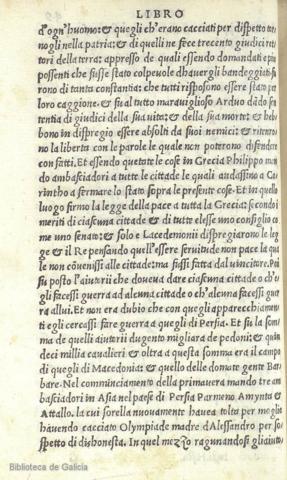 LIBRO
d'ogn'huomo: & quegli ch'erano cacciati per dispetto tor
nogli nella patria: & di quelli ne fece trecento giudici ret
tori della terra: appresso de quali essendo domandati e piu
possenti che fusse stato colpeuole d'hauergli bandeggiati fu
rono di tanta constantia: che tutti risposono essere stato per
loro caggione. & fu al tutto marauiglioso Arduo dado sen
tentia di giudici della sua uita: & della sua morte: & heb
bono in dispregio essere absolti da suoi nemici: &
no la liberta con le parole le quale non poterono difendere
con fatti. Et essendo quete le cose in Grecia Philippo man
do ambasciadori a tutte le cittade le quali andassino a Co
rintho a fermare lo stato sopra le presente cose. Et in quello
luogo firmo la legge della pace a tutta la Grecia: secondo i
meriti di ciascuna cittade & di tutte elesse uno consiglio co
me uno senato: & solo e Lacedemonii dispregiarono le leg
ge & il Re pensando quell'essere seruitude non pace la qua
le non cōuenissi alle cittade: ma fussi fatta dal uincitore. Poi
su posto l'aiutorii che doueua dare ciascuna cittade o ch'e
gli facessi guerra ad alcuna cittade o ch'alcuna facessi guer
ra a llui. Et non era dubio che con quegli apparecchiamen
ti egli cercassi fare guerra a quegli di Persia. Et fu la som
ma de quelli aiutorii dugento migliara de pedoni: & quin
deci millia cauallieri & oltra a questa somma era il campo
di quegli di Macedonia: & quello delle domate gente Bar
bare. Nel comminciamento della primauera mando tre am
basciadori in Asia nel paese di Persia Parmeno Amynta &
Attallo. la cui sorella nuouamente hauea tolta per moglie
hauendo cacciato Olympiade madre d'Alessandro per so
spetto di dishonesta. In quel mezzo ragunandosi gli aiuto
Biblioteca de Galicia